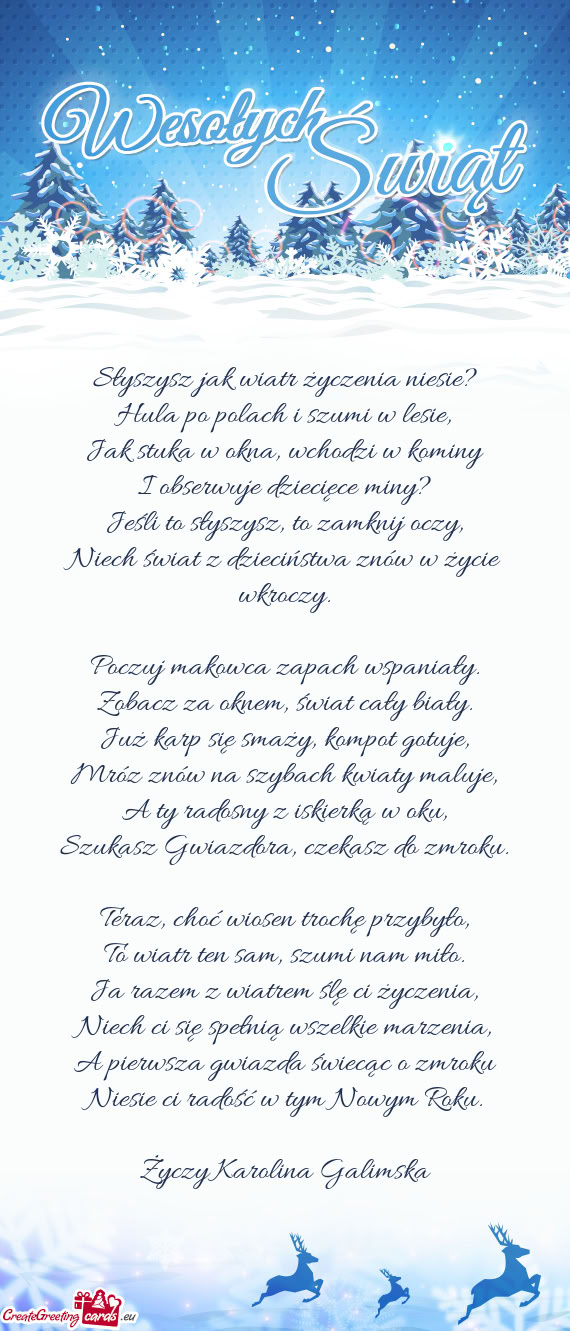 Wesołych
Świąt
Słyszysz jak wiatr życzenia niesie?
Hula po polach i szumi w lesie,
Jak stuka w okna, wchodzi w kominy
I obserwuje dziecięce miny?
Jeśli to słyszysz, to zamknij oczy,
Niech świat z dzieciństwa znów w życie
wkroczy.
Poczuj makowca zapach wspaniały.
Zobacz za oknem, świat cały biały.
Już karp się smaży, kompot gotuje,
Mróz znów na szybach kwiaty maluje,
A ty radosny z iskierką w oku,
Szukasz Gwiazdora, czekasz do zmroku.
Teraz, choć wiosen trochę przybyło,
To wiatr ten sam, szumi nam miło.
Ja razem z wiatrem ślę ci życzenia,
Niech ci się spełnią wszelkie marzenia,
A pierwsza gwiazda świecąc o zmroku
Niesie ci radość w tym Nowym Roku.
Życzy Karolina Galimska
CreateGreeting cards .eu